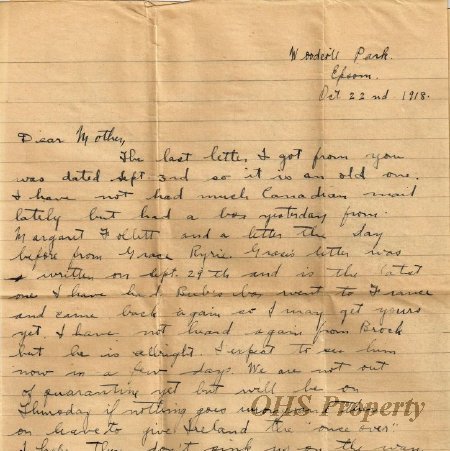 Woodcote Park
Epsom.
Oct 22nd 1918.
Dear Mother,
The last letter I got from you
was dated Sept 3rd so it is an old one.
I have not had much Canadian mail
lately but had a box yesterday from
Margaret Follett and a letter the day
before from Grace Ryrie Grace's letter was
written on Sept. 29th and is the latest
one I have had Bub's box went to France
and came back again so I may get yours
yet. I have not heard again from Brock
but he is allright. I expect to see him
now in a few days. We are not out
of quarantine yet but will be on
Thursday if nothing goes
on leave to give Ireland the "once over"
I hope they don't sink us on the way
OHS Property